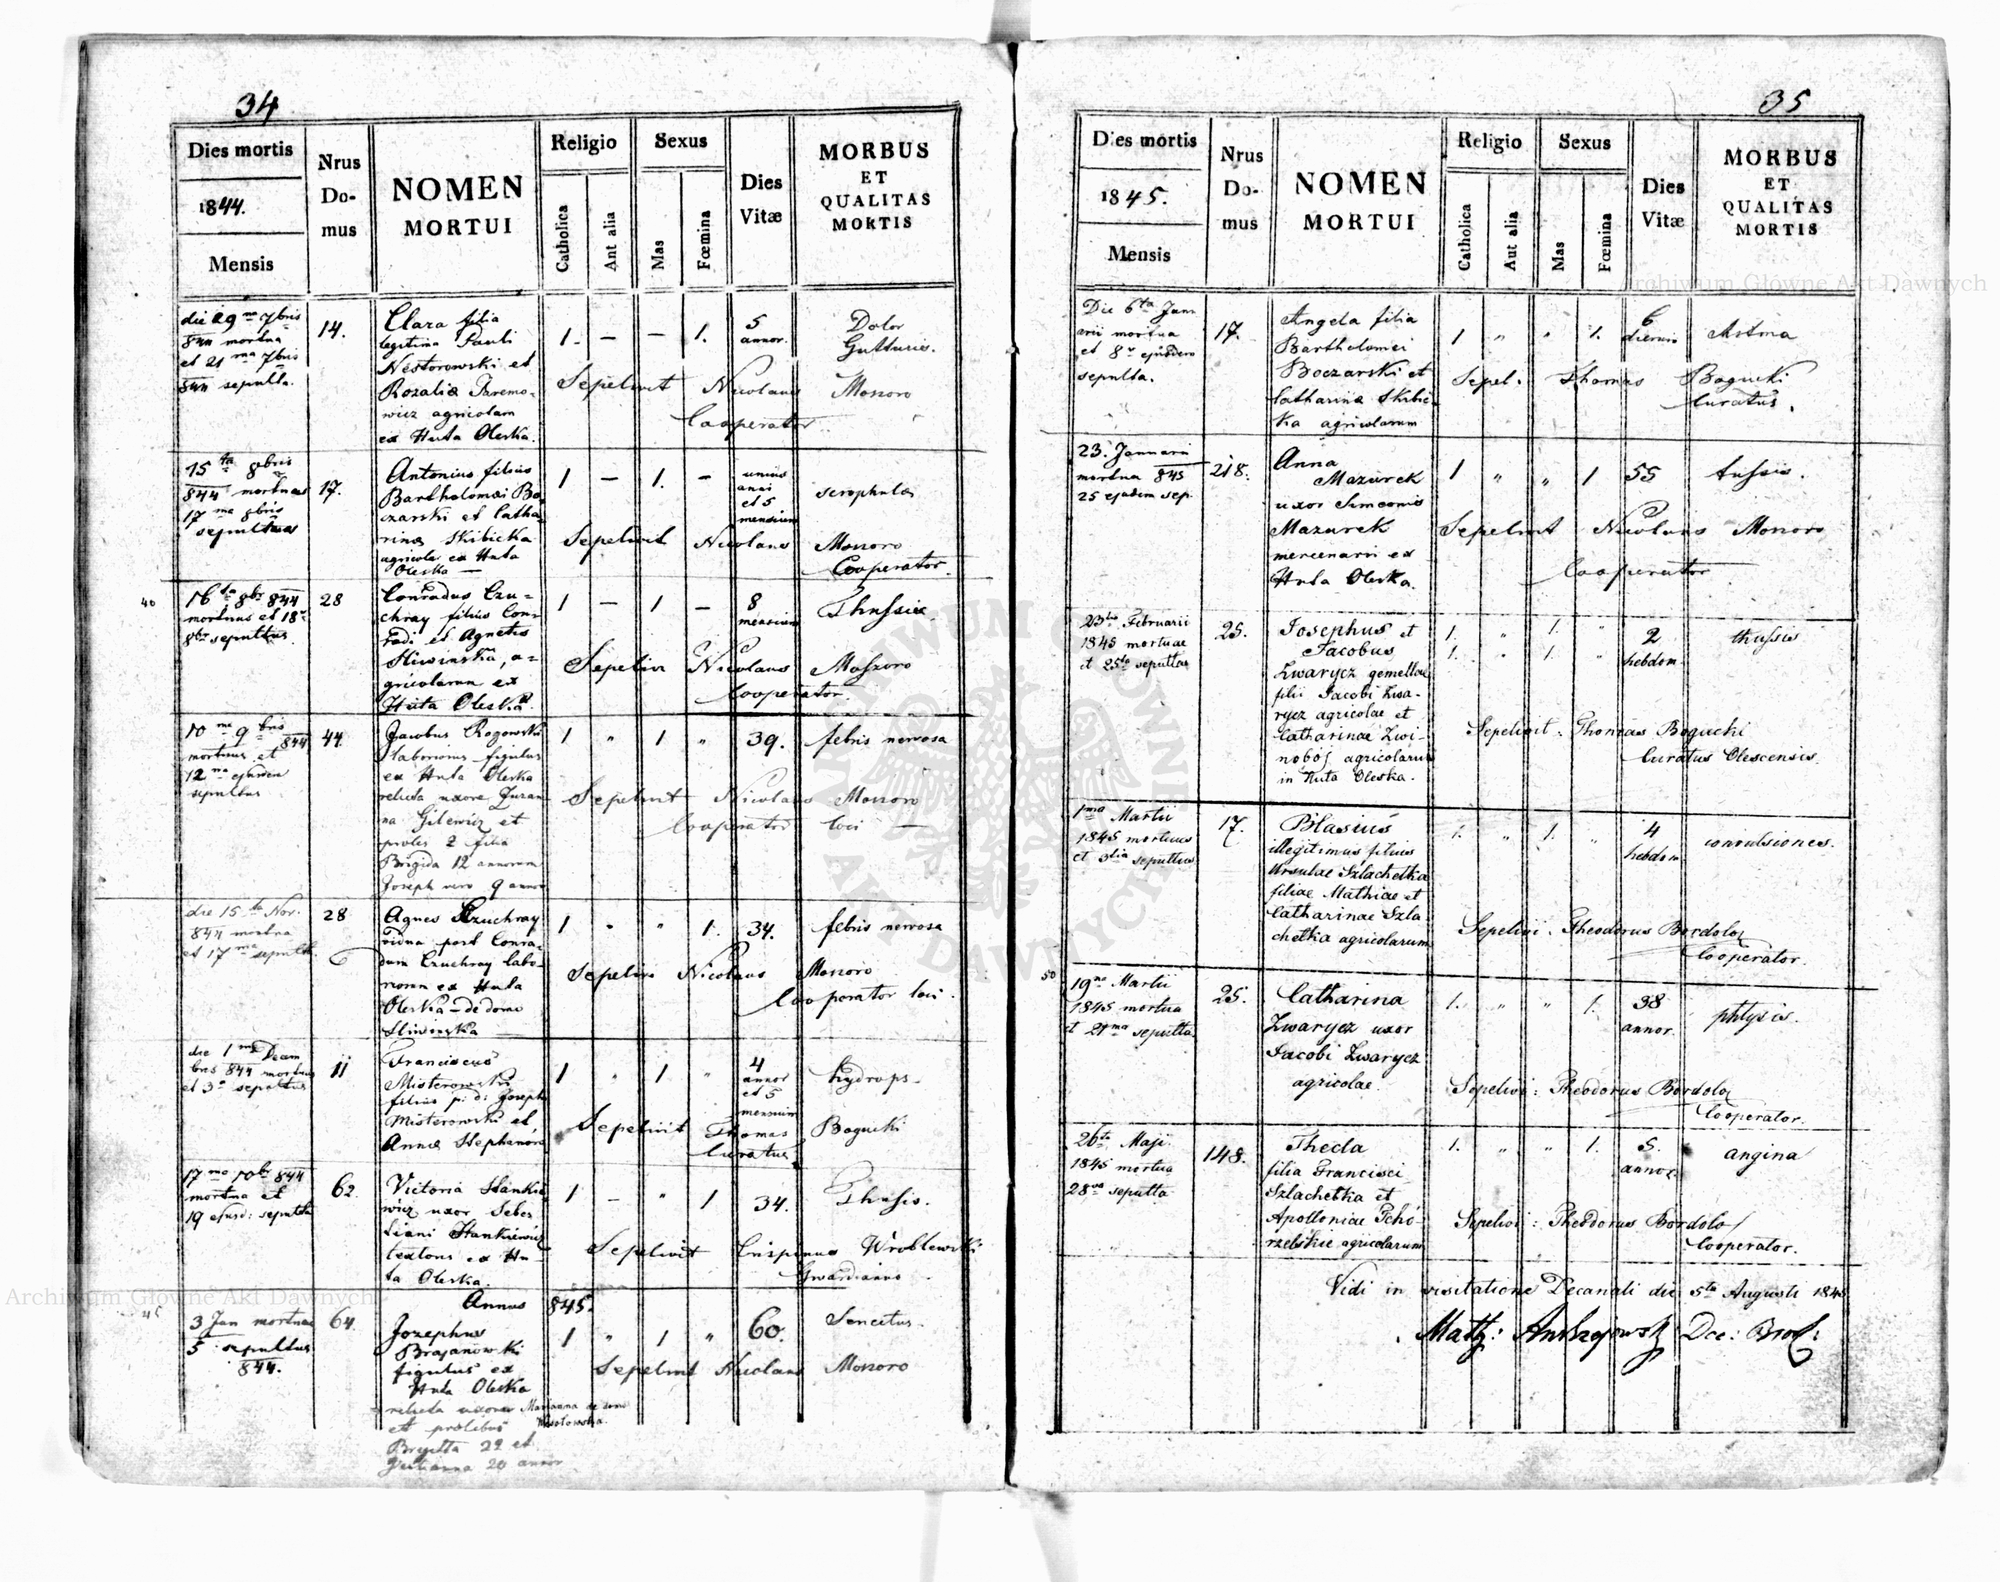 34
Dies mortis
1844.
Mensis
Nrus
Do-
mus
NOMEN
MORTUI
Religio
Catholica
Aut alia
Sexus
Mas
Fœmina
Dies
Vitæ
MORBUS
ET
QUALITAS
MORTIS
die 29 na 7bris
844 mortua
et 21 ma 7bris
844 sepulta.
14.
Clara filia
legitima Pauli
Nestorowski et
Rozalia Jaremo-
wicz agricolam
ex Huta Oleska.
1. — — 1.
5
annor.
Dolor
Gutturis.
Sepelivit Nicolaus Monoro
Cooperator
15 ta 8bris
844 mortuus
17 ma 8bris
sepultus
17.
Antonius filius
Bartholomæi Bo-
czarski et Catha-
rina Skibicka
agricola ex Huta
Oleska —
1 — 1. —
unius
anni
et 5
mensium
scrophula
Sepelivit Nicolaus Monoro
Cooperator.
40
16 ta 8br 844
mortuus et 18 a
8br sepultus.
28
Conradus Czu-
chray filius Con-
radi et Agnetis
Sliwinska, a-
gricolarum ex
Huta Oleska.
1 — 1 —
8
mensium
Thussis
Sepelivi Nicolaus Moszoro
Cooperator.
10 ma 9 bris
844
mortuus et
12 ma ejusdem
sepultus
44
Jacobus Rogowski
laborious figulus
ex Huta Oleska
relicta uxore Zuzan-
na Gilewicz et
proles 2 filia
Brigida 12 annorum
Joseph vero 9 annor
1 " 1 "
39.
febris nervosa
Sepelivit Nicolaus Monoro
Cooperator loci —
die 15 ta Nov.
844 mortua
et 17 ma sepulta
28
Agnes Czuchray
vidua post Conra-
dum Czuchray labo-
riorum ex Huta
Oleska — de domo
Sliwinska
1 " " 1.
34.
febris nervosa
Sepelivi Nicolaus Monoro
Cooperator loci.
die 1 ma Decem
bris 844 mortuus
et 3 a sepultus
11
Franciscus
Misterowski
filius p: d: Joseph
Misterowski et
Annæ Stephanow
1 " 1 "
4
annor
et 5
mensium
hydrops.
Sepelivit Thomas Bogucki
Curatus
17 ma 10br 844
mortua et
19 ejusd: sepulta
62.
Victoria Stankie
wicz uxor Sebas
tiani Stankiewicz
textoris ex Hu-
ta Oleska.
1 — " 1
34.
Thussis.
Sepelivit Crispinus Wroblewski
Gwardianus
Annus 845.
45
3 Jan mortuus
5 sepultus
844.
64.
Jozephus
Brajanowski
figulus ex
Huta Oleska
relicta uxore Marianna de domo
et prolibus
Brygitta 22 et
Julianna 20 annor
1 " 1 "
60.
Senectus.
Sepelivit Nicolaus Monoro
35
Dies mortis
1845.
Mensis
Nrus
Do-
mus
NOMEN
MORTUI
Religio
Catholica
Aut alia
Sexus
Mas
Fœmina
Dies
Vitæ
MORBUS
ET
QUALITAS
MORTIS
Die 6 ta Janu
arii mortua
et 8 a ejusdem
sepulta.
17.
Angela filia
Bartholomei
Boczarski et
Catharina Skibic-
ka agricolarum
1 " " 1.
6
dierum
Astma
Sepel. Thomas Bogucki
Curatus.
23. Januarii
mortua 845
25 ejusdem sep.
218.
Anna
Mazurek
uxor Simeonis
Mazurek
mercenarii ex
Huta Oleska.
1 " " 1
55
tussis.
Sepelivit Nicolaus Monoro
Cooperator
23tia Februarii
1845 mortuae
et 25ta sepultae
25.
Josephus et
Jacobus
Zwarycz gemellae
filii Jacobi Zwa-
rycz agricolae et
Catharinae Zwi-
nobój agricolarum
in Huta Oleska.
1. " 1. "
1. " 1. "
2
hebdom
thussis
Sepelivit: Thomas Bogucki
Curatus Olescensis.
1ma Martii
1845 mortuus
et 3tia sepultus
17.
Blasius
illegitimus filius
Ursulae Szlachetka
filiae Mathiae et
Catharinae Szla-
chetka agricolarum
1. " 1. "
4
hebdom
convulsiones.
Sepelivi: Theodorus Bordolo
Cooperator.
50
19na Martii
1845 mortua
et 21ma sepulta
25.
Catharina
Zwarycz uxor
Jacobi Zwarycz
agricolae.
1. " " 1.
38
annor.
phtysis.
Sepelivi: Theodorus Bordolo
Cooperator.
26ta Maji
1845 mortua
28va sepulta
148.
Thecla
filia Francisci
Szlachetka et
Apolloniae Tchó-
rzelskie agricolarum
1. " " 1.
5.
annor.
angina
Sepelivi: Theodorus Bordolo
Cooperator.
Vidi in visitatione Decanali die 5ta Augusti 1845
Math: Dec: Brod:
Archiwum Główne Akt Dawnych
Archiwum Główne Akt Dawnych
ARCHIWUM GŁÓWNE AKT DAWNYCH